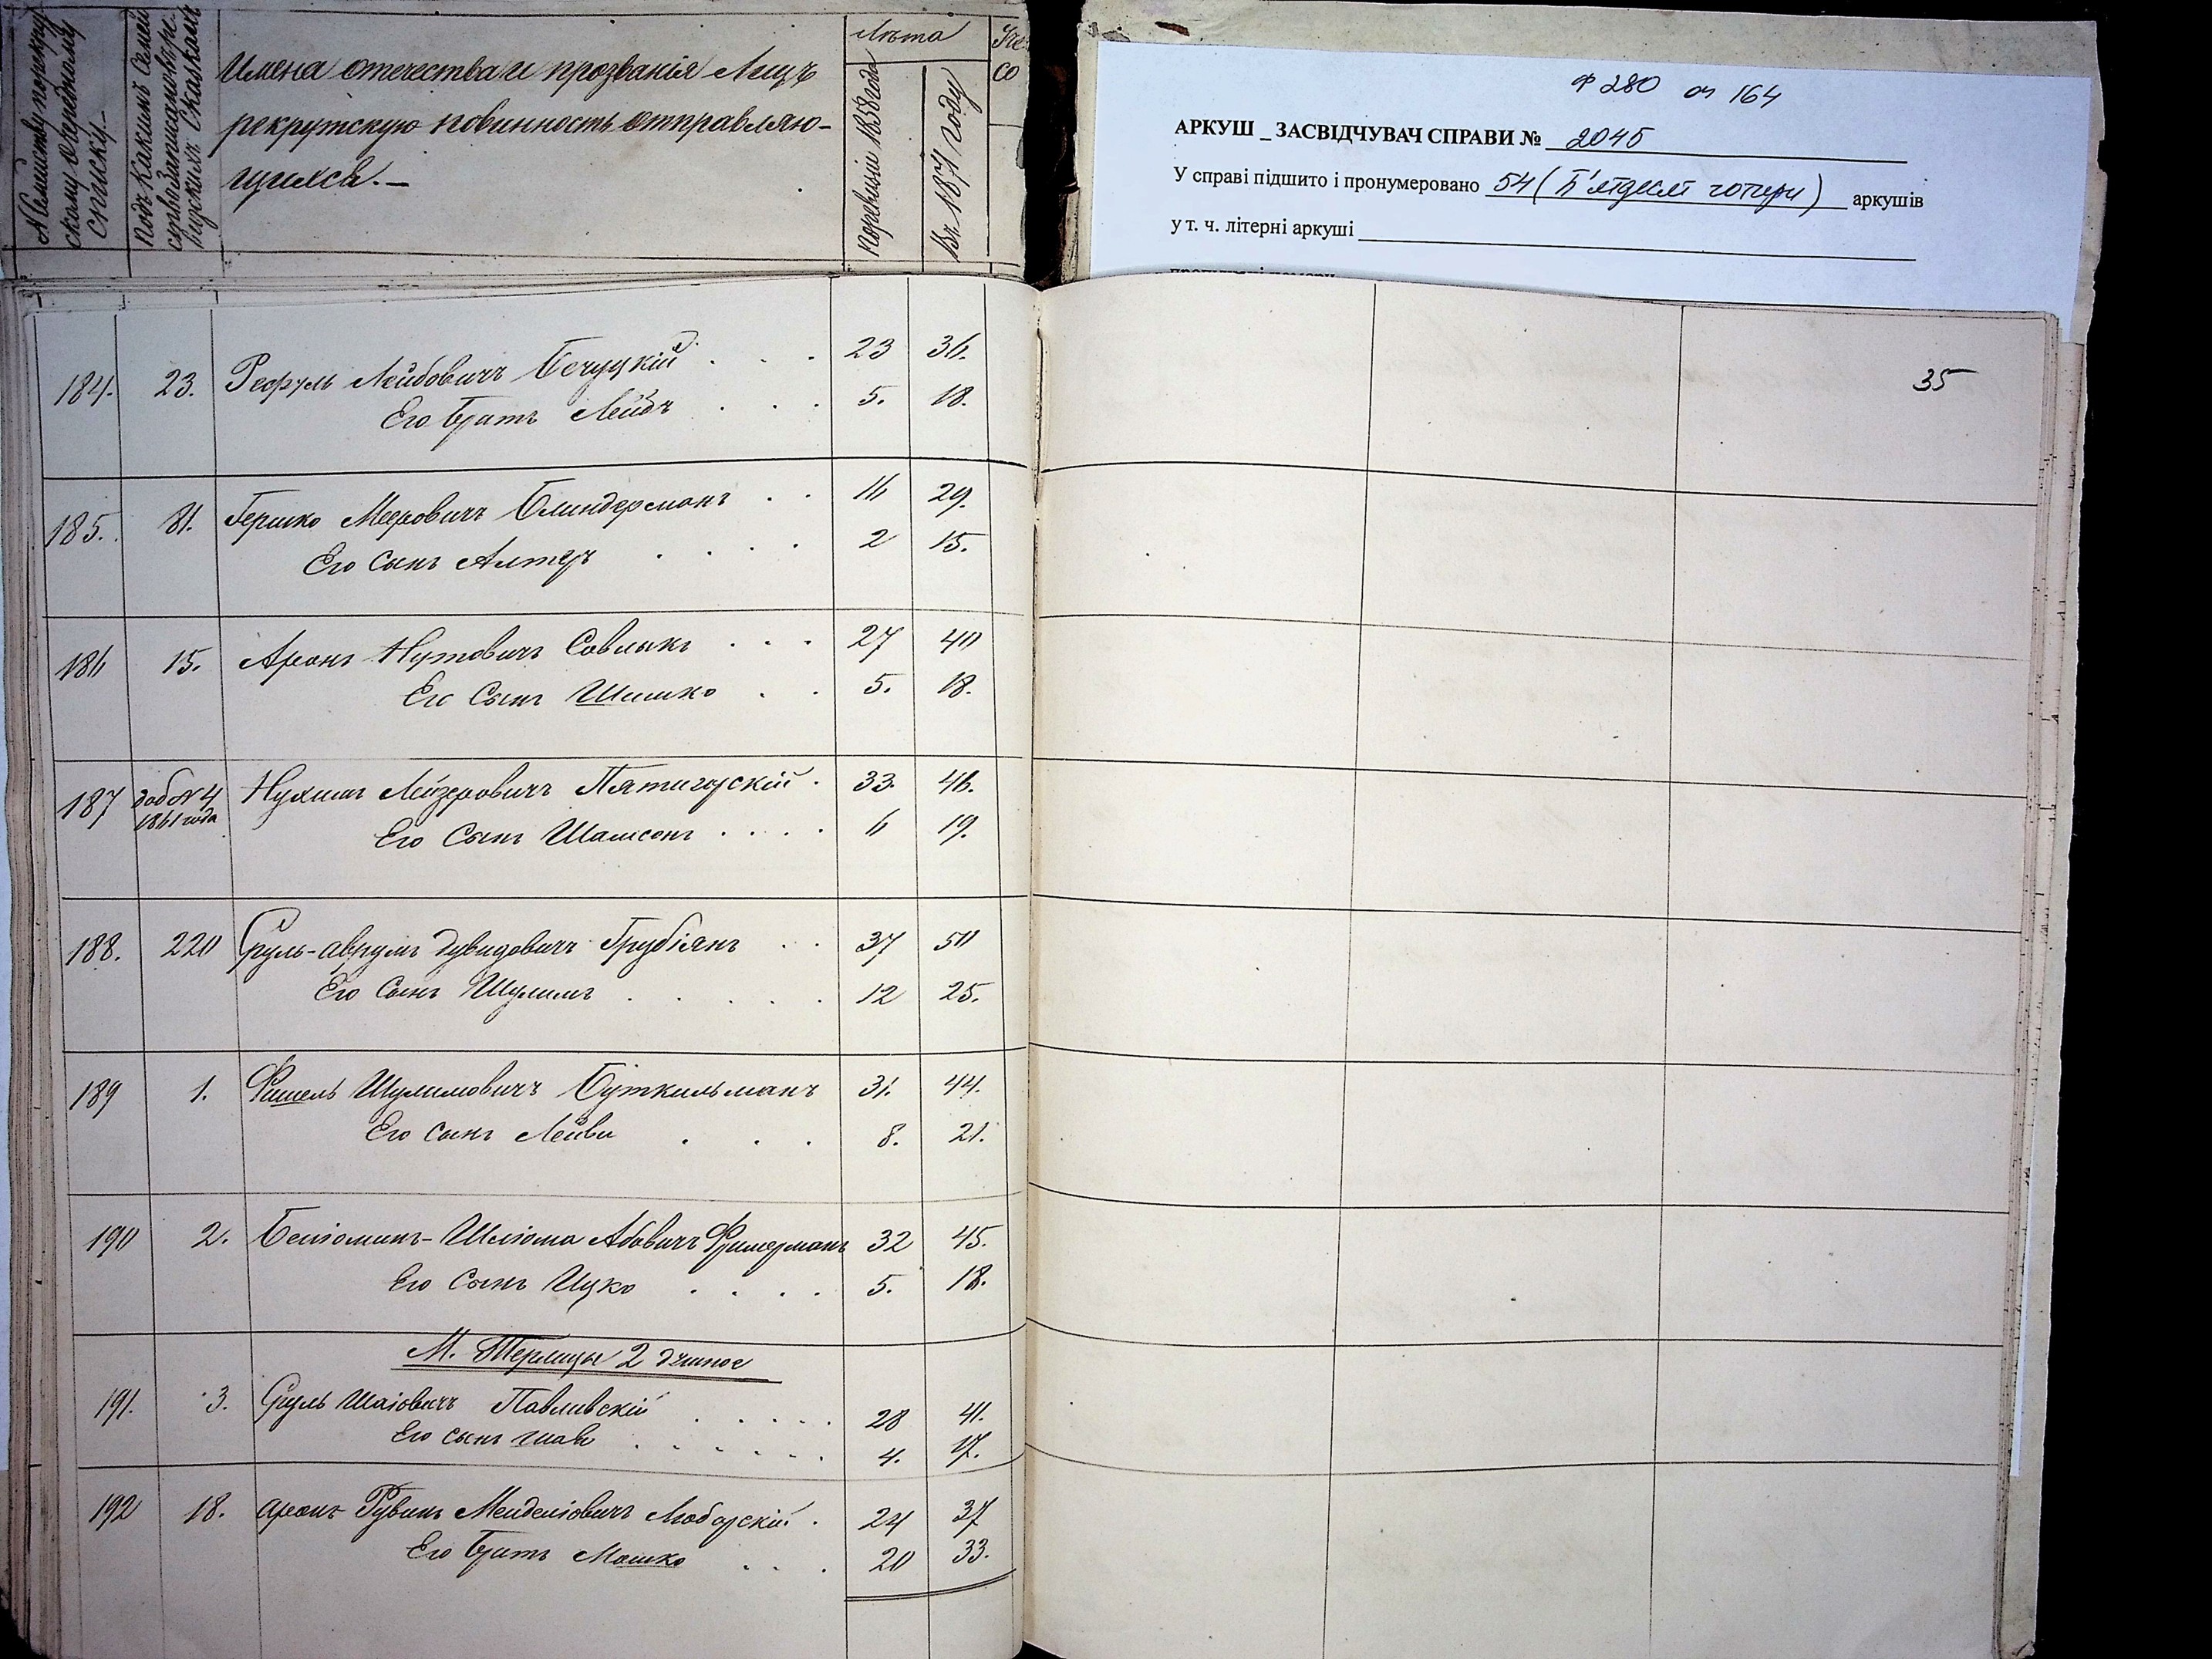 № Семейству по рекрутскому очередному списку.
Подъ какимъ Семействомъ записанъ по ревизскимъ Сказкамъ
Имена отечества и прозванія Лицъ
рекрутскую повинность отправляю-
щихся.
Лѣта
По ревизіи 1858 года
Въ 1871 году
Ф 280 оп 164
АРКУШ _ ЗАСВІДЧУВАЧ СПРАВИ № 2045
У справі підшито і пронумеровано 54 (П'ятдесят чотири) аркушів
у т. ч. літерні аркуші
35
184. 23. Рефуль Лейбовичъ Бечуцкій 23 36.
Его братъ Лейбъ 5. 18.
185. 81. Гершко Мееровичъ Блиндерманъ 16 29.
Его Сынъ Алтеръ 2 15.
186 15. Аронъ Нутовичъ Совлыкъ 27 40
Его Сынъ Шимко 5. 18.
187 доб № 4 1861 года Нухимъ Лейзеровичъ Пятигорскій 33. 46.
Его Сынъ Шамсонъ 6 19.
188. 220 Сруль-Аврумъ Дувидовичъ Грубіянъ 37 50
Его Сынъ Шулимъ 12 25.
189 1. Фишель Шулимовичъ Буткильманъ 31. 44.
Его Сынъ Лейви 8. 21.
190 2. Беніоминъ-Шліома Абовичъ Фришерманъ 32 45.
Его Сынъ Ицко 5. 18.
М. Терлицы 2 дѣшное
191. 3. Сруль Шаіовичъ Павливскій 28 41.
Его сынъ Шая 4. 17.
192 18. Аронъ Рувинъ Менделіовичъ Любарскій 24 37
Его братъ Мошко 20 33.